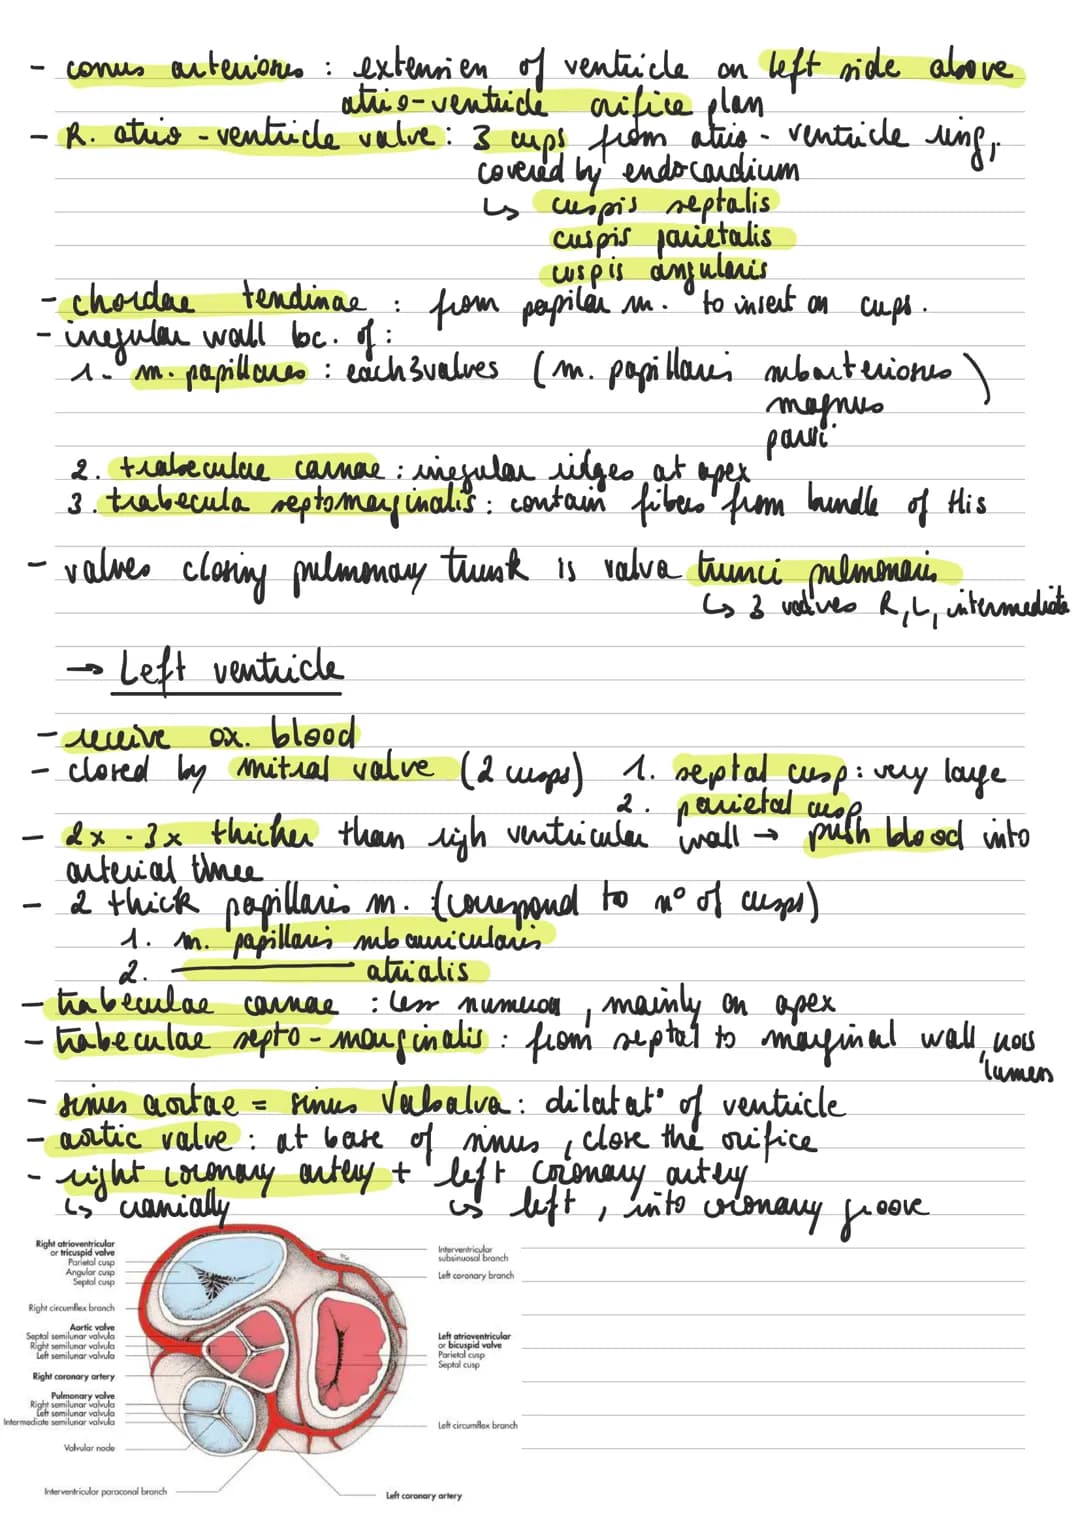 - conus arteriores : extension of ventricle on left side above
atrio-ventricle orifice plan
- R. atrio-ventricle valve : 3 cups from atrio-ventricle ring,
covered by endocardium
↳ cuspis septalis
cuspis parietalis
cuspis angularis
- chordae tendinae : from papilar m. to insert on cups.
- irregular wall bc. of :
1. m. papillares : each 3 valves (m. papillaris subarteriores)
magnus
parvi
2. trabeculae carnae : irregular ridges at apex
3. trabecula septomarginalis : contain fibers from bundle of His
- valves closing pulmonary trunk is valva trunci pulmonaris
↳ 3 valves R, L, intermediate
→ Left ventricle
- receive ox. blood
- closed by mitral valve (2 cusps) 1. septal cusp : very large
2. parietal cusp
- 2x - 3x thicher than righ ventricular wall → push blood into
arterial three
- 2 thick papillaris m. (correspond to n° of cusps)
1. m. papillaris subauricularis
2. atrialis
- trabeculae carnae : less numerous, mainly on apex
- trabeculae septo-marginalis : from septal to marginal wall,
lumen
- sinus aortae = sinus Valsalva : dilatat° of ventricle
- aortic valve : at base of sinus, close the orifice
- right coronary artery + left coronary artery
↳ cranially ↳ left, into coronary groove
Right atrioventricular
or tricuspid valve
Parietal cusp
Angular cusp
Septal cusp
Right circumflex branch
Aortic valve
Septal semilunar valvula
Right semilunar valvula
Left semilunar valvula
Right coronary artery
Pulmonary valve
Right semilunar valvula
Left semilunar valvula
Intermediate semilunar valvula
Valvular node
Interventricular paraconal branch
Interventricular
subsinuosal branch
Left coronary branch
Left atrioventricular
or bicuspid valve
Parietal cusp
Septal cusp
Left circumflex branch
Left coronary artery